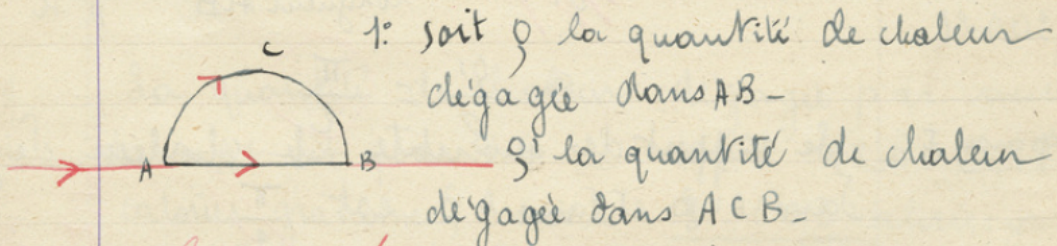 C
1º soit Q la quantité de chaleur
dégagée dans AB -
A B
Q' la quantité de chaleur
dégagée dans ACB -